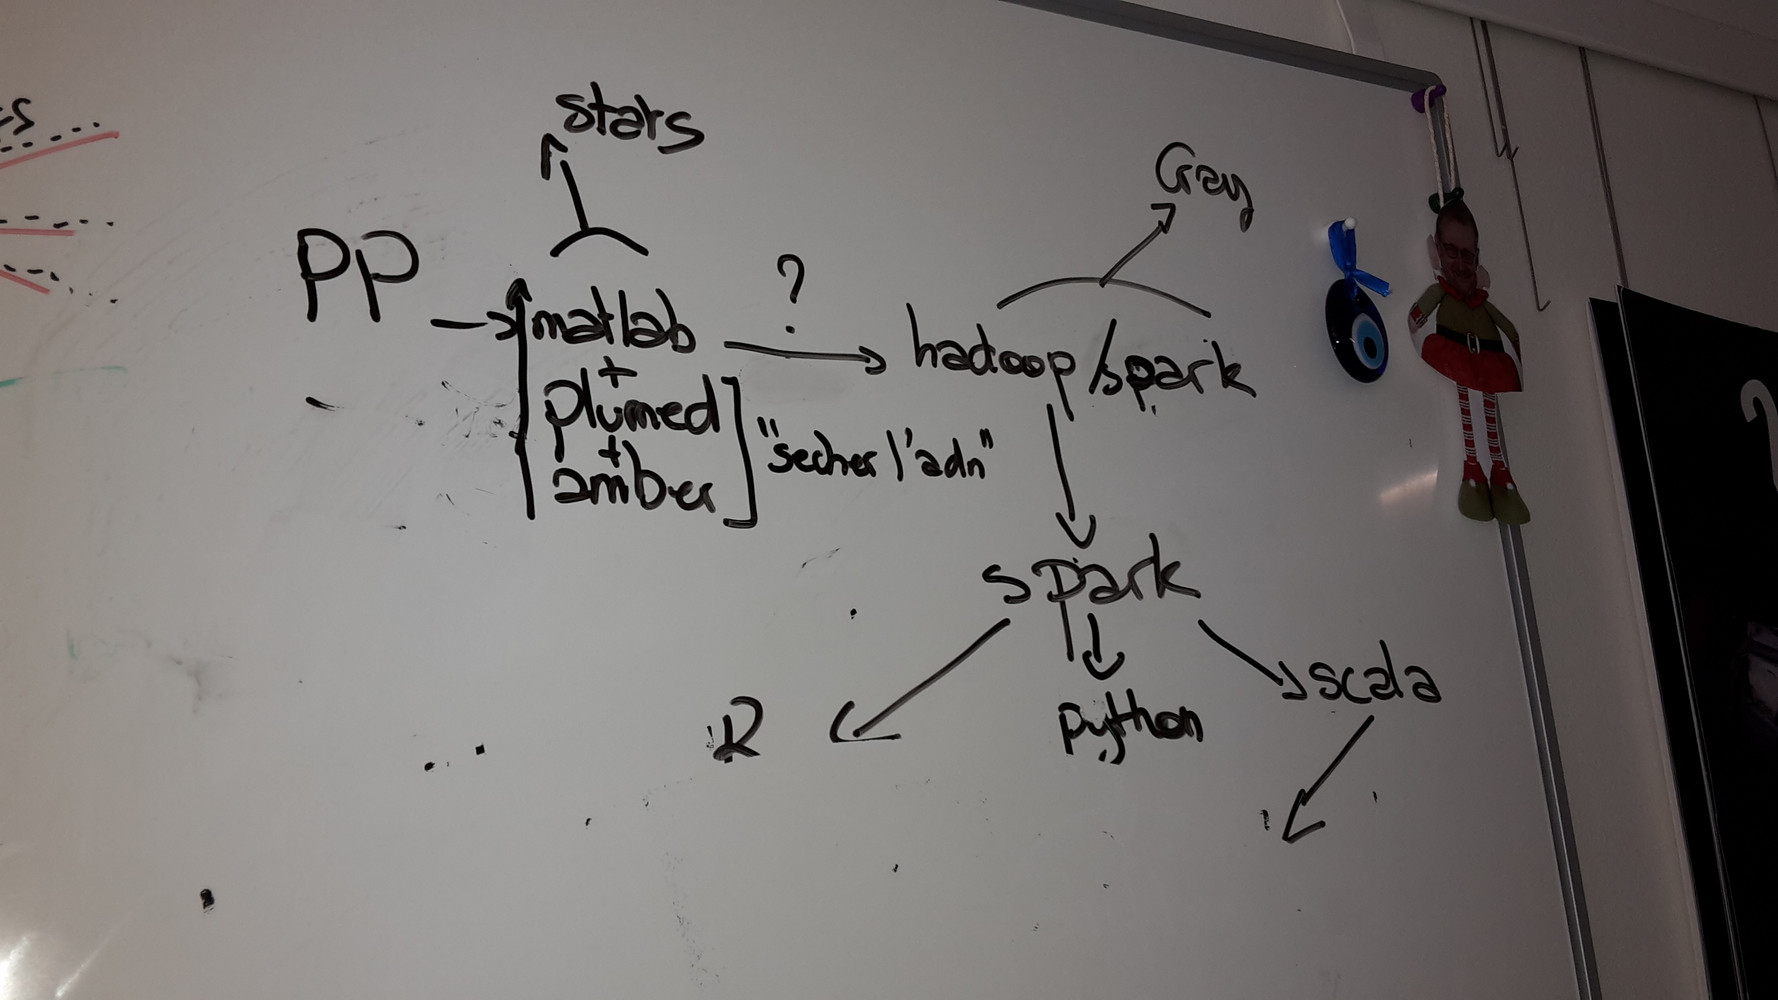 stars
Cray
PP
?
matlab
hadoop/spark
+
plumed
"secher l'adn"
+
amber
spark
scala
R
python